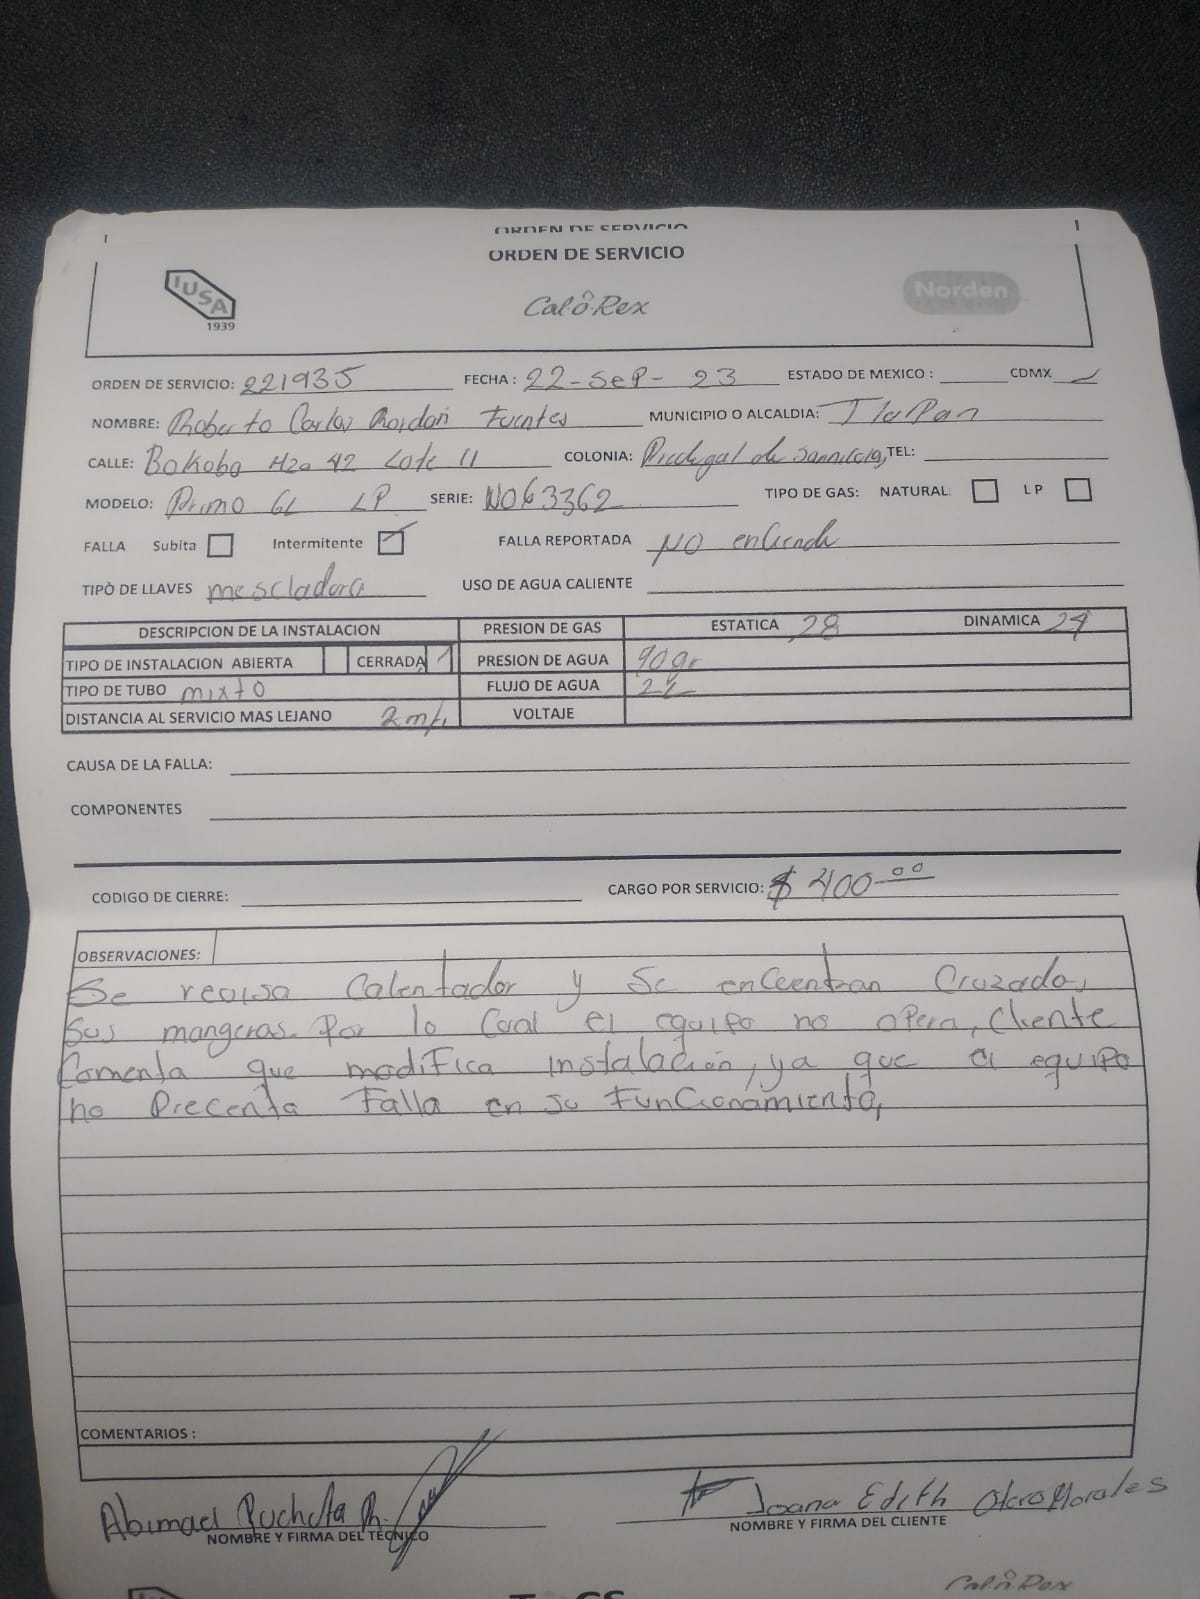 ORDEN DE SERVICIO
ORDEN DE SERVICIO
IUSA
1939
Calorex
Norden
ORDEN DE SERVICIO: 221935 FECHA : 22-Sep-23 ESTADO DE MEXICO : CDMX
NOMBRE: Roberto Carlos Fuentes MUNICIPIO O ALCALDIA: Tlalpan
CALLE: Bokoba Mza 42 Lote 11 COLONIA: Pedregal de TEL:
MODELO: Primo 6L LP SERIE: N063362 TIPO DE GAS: NATURAL: LP
FALLA Subita Intermitente FALLA REPORTADA NO enciende
TIPÒ DE LLAVES mescladora USO DE AGUA CALIENTE
DESCRIPCION DE LA INSTALACION PRESION DE GAS ESTATICA 28 DINAMICA 24
TIPO DE INSTALACION ABIERTA CERRADA PRESION DE AGUA 90gr
TIPO DE TUBO mixto FLUJO DE AGUA
DISTANCIA AL SERVICIO MAS LEJANO 2mt. VOLTAJE
CAUSA DE LA FALLA:
COMPONENTES
CODIGO DE CIERRE: CARGO POR SERVICIO: $ 400.00
OBSERVACIONES:
Se revisa Calentador y Se enCuentran Cruzadas
Sus mangeras. Por lo Cual el equipo no opera, Cliente
Comenta que modifica instalación, ya que el equipo
no Precenta Falla en su Funcionamiento,
COMENTARIOS :
Abimael Pucheta R. Joana Edith Otero Morales
NOMBRE Y FIRMA DEL TECNICO NOMBRE Y FIRMA DEL CLIENTE
Calorex